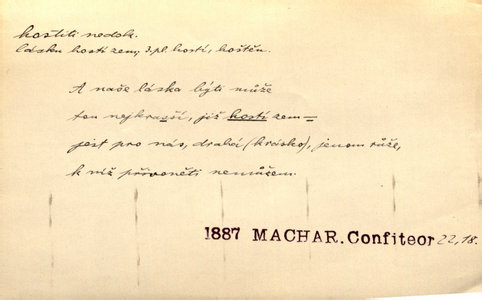 hostiti nedok.
lásku hostí zem, 3. pl. hostí, hoštěn.
A naše láska býti může
tou nejkrasší, již hostí zem —
jest pro nás, drahá (krásko), jenom růže,
k níž přivoněti nemůžem.
1887 MACHAR. Confiteor 22, 18.